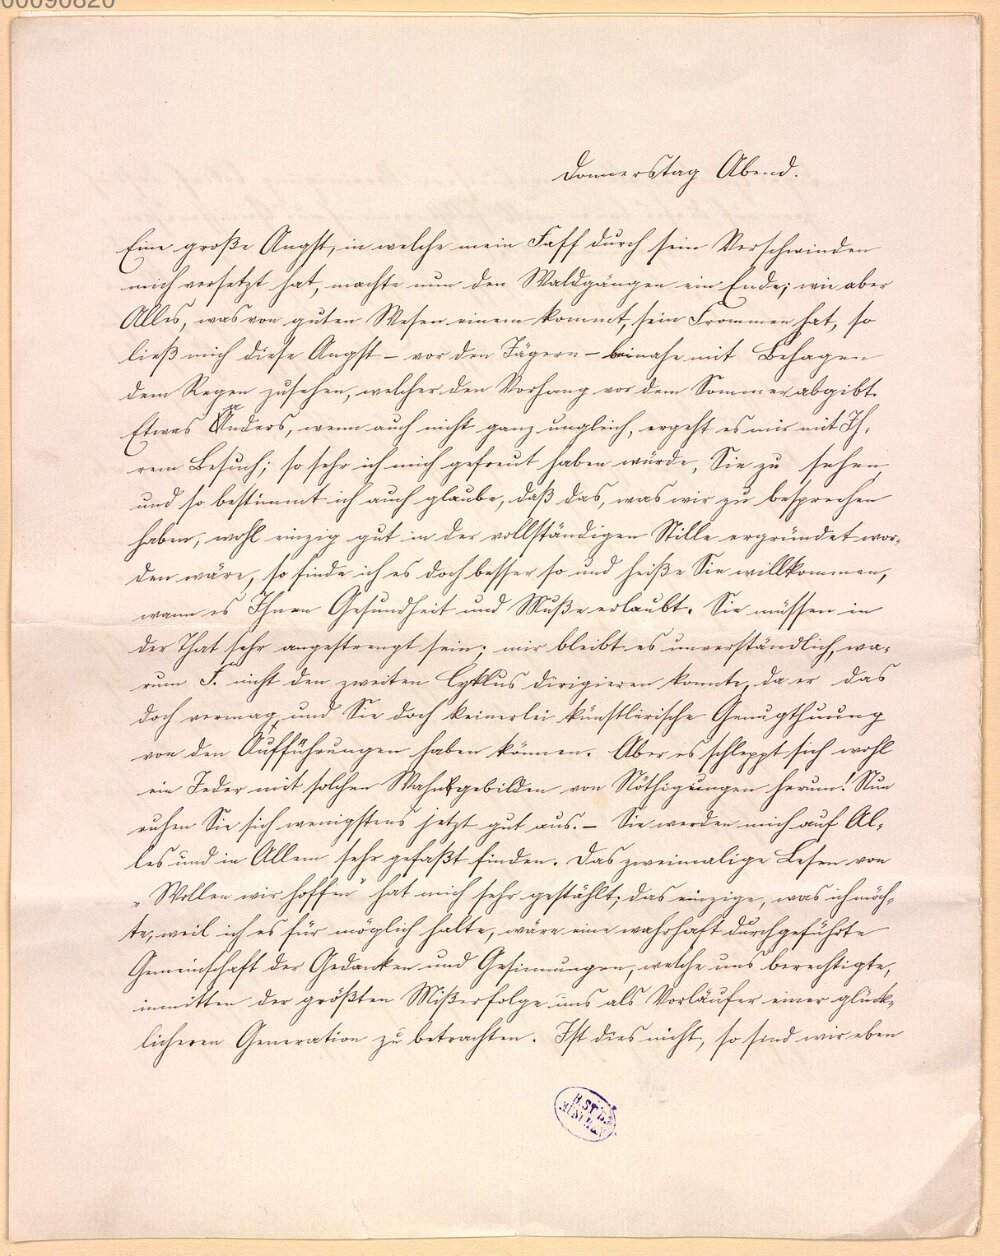 00090820
Donnerstag Abend.
Eine große Angst, in welche mein Faff durch sein Verschwinden
mich versetzt hat, machte nun den Waldgängen ein Ende; wie aber
Alles, was von guten Wesen einem kommt, sein Frommen hat, so
ließ mich diese Angst – vor den Jägern – beinahe mit Behagen
dem Regen zusehen, welcher den Vorhang vor dem Sommer abgibt.
Etwas Anders, wenn auch nicht ganz ungleich, ergeht es mir mit Ih-
rem Besuch; so sehr ich mich gefreut haben würde, Sie zu sehen
und so bestimmt ich auch glaube, daß das, was wir zu besprechen
haben, wohl einzig gut in der vollständigen Stille ergründet wor-
den wäre, so finde ich es doch besser so und heiße Sie willkommen,
wann es Ihnen Gesundheit und Muße erlaubt. Sie müssen in
der That sehr angestrengt sein; mir bleibt es unverständlich, wa-
rum F. nicht den zweiten Cyklus dirigieren konnte, da er das
doch vermag und Sie doch keinerlei künstlerische Genugthuung
von den Aufführungen haben können. Aber es schleppt sich wohl
ein Jeder mit solchen Wahngebilden von Nöthigungen herum! Nun
ruhen Sie sich wenigstens jetzt gut aus. – Sie werden mich auf Al-
les und in Allem sehr gefaßt finden. Das zweimalige Lesen von
„Wollen wir hoffen" hat mich sehr gestählt; das einzige, was ich möch-
te, weil ich es für möglich halte, wäre eine wahrhaft durchgeführte
Gemeinschaft der Gedanken und Gesinnungen, welche uns berechtigte,
inmitten der größten Mißerfolge uns als Vorläufer einer glück-
licheren Generation zu betrachten. Ist dies nicht, so sind wir eben
B.ST.B.
MÜNCHEN